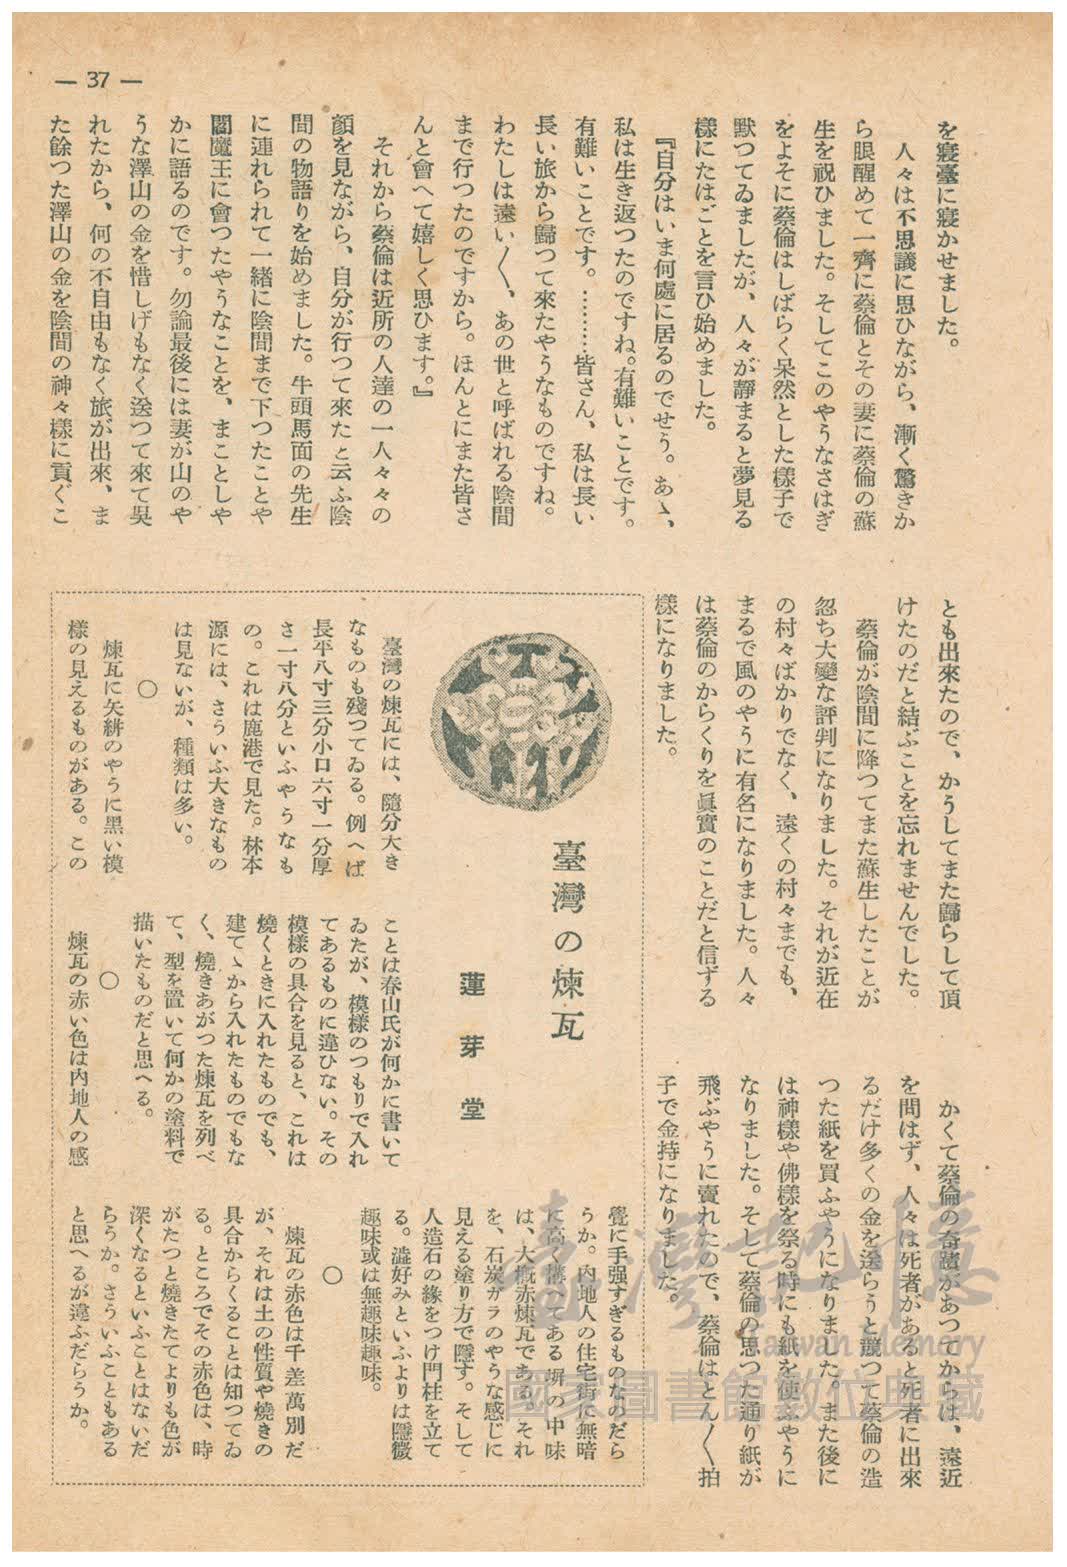 — 37 —
を寢臺に寢かせました。
人々は不思議に思ひながら、漸く驚きか
ら眼醒めて一齊に蔡倫とその妻に蔡倫の蘇
生を祝ひました。そしてこのやうなさはぎ
をよそに蔡倫はしばらく呆然とした樣子で
獸つてゐましたが、人々が靜まると夢見る
樣にたはごとを言ひ始めました。
『自分はいま何處に居るのでせう。あゝ、
私は生き返つたのですね。有難いことです。
有難いことです。………皆さん、私は長い
長い旅から歸つて來たやうなものですね。
わたしは遠い〱、あの世と呼ばれる陰間
まで行つたのですから。ほんとにまた皆さ
んと會へて嬉しく思ひます。』
それから蔡倫は近所の人達の一人々々の
顏を見ながら、自分が行つて來たと云ふ陰
間の物語りを始めました。牛頭馬面の先生
に連れられて一緒に陰間まで下つたことや
閻魔王に會つたやうなことを、まことしや
かに語るのです。勿論最後には妻が山のや
うな澤山の金を惜しげもなく送つて來て吳
れたから、何の不自由もなく旅が出來、ま
た餘つた澤山の金を陰間の神々樣に貢ぐこ
とも出來たので、かうしてまた歸らして頂
けたのだと結ぶことを忘れませんでした。
蔡倫が陰間に降つてまた蘇生したことが
忽ち大變な評判になりました。それが近在
の村々ばかりでなく、遠くの村々までも、
まるで風のやうに有名になりました。人々
は蔡倫のからくりを眞實のことだと信ずる
樣になりました。
かくて蔡倫の奇蹟があつてからは、遠近
を問はず、人々は死者があると死者に出來
るだけ多くの金を送らうと競つて蔡倫の造
つた紙を買ふやうになりました。また後に
は神樣や佛樣を祭る時にも紙を使ふやうに
なりました。そして蔡倫の思つた通り紙が
飛ぶやうに賣れたので、蔡倫はとん〱拍
子で金持になりました。
臺灣の煉瓦
蓮芽堂
臺灣の煉瓦には、隨分大き
なものも殘つてゐる。例へば
長平八寸三分小口六寸一分厚
さ一寸八分といふやうなも
の。これは鹿港で見た。林本
源には、さういふ大きなもの
は見ないが、種類は多い。
〇
煉瓦に矢絣のやうに黑い模
樣の見えるものがある。この
ことは春山氏が何かに書いて
ゐたが、模樣のつもりで入れ
てあるものに違ひない。その
模樣の具合を見ると、これは
燒くときに入れたものでも、
建てゝから入れたものでもな
く、燒きあがつた煉瓦を列べ
て、型を置いて何かの塗料で
描いたものだと思へる。
〇
煉瓦の赤い色は內地人の感
覺に手强すぎるものなのだら
うか。內地人の住宅街に無暗
に高く構へてある塀の中味
は、大概赤煉瓦である。それ
を、石炭ガラのやうな感じに
見える塗り方で隱す。そして
人造石の緣をつけ門柱を立て
る。澁好みといふよりは隱微
趣味或は無趣味趣味。
〇
煉瓦の赤色は千差萬別だ
が、それは土の性質や燒きの
具合からくることは知つてゐ
る。ところでその赤色は、時
がたつと燒きたてよりも色が
深くなるといふことはないだ
らうか。さういふこともある
と思へるが違ふだらうか。
臺灣記憶
Taiwan Memory
國家圖書館數位典藏